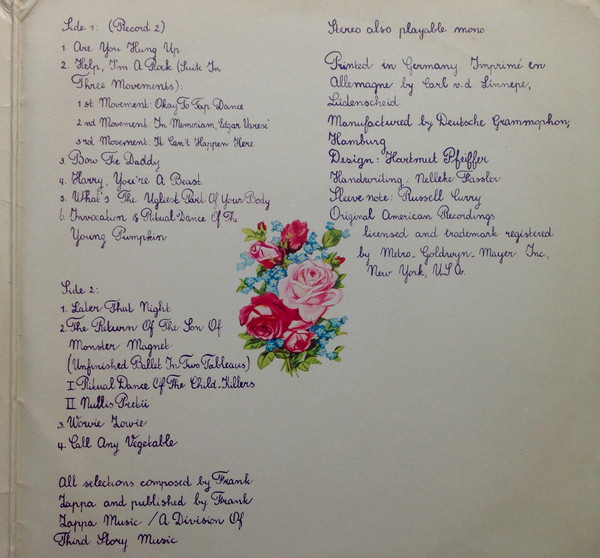 Side 1: (Record 2)
1. Are You Hung Up
2. Help, I'm A Rock (Suite In
Three Movements)
1st Movement: Okay To Tap Dance
2nd Movement: In Memoriam, Edgar Varese'
3rd Movement: It Can't Happen Here
3. Bow Tie Daddy
4. Harry, You're A Beast
5. What's The Ugliest Part Of Your Body
6. Invocation & Ritual Dance Of The
Young Pumpkin
Side 2:
1. Later That Night
2. The Return Of The Son Of
Monster Magnet
(Unfinished Ballet In Two Tableaus)
I Ritual Dance Of The Child-Killers
II Nullis Pretii
3. Wowie Zowie
4. Call Any Vegetable
All selections composed by Frank
Zappa and published by Frank
Zappa Music / A Division Of
Third Story Music
Stereo also playable mono
Printed in Germany Imprimé en
Allemagne by Carl v.d. Linnepe,
Lüdenscheid
Manufactured by Deutsche Grammophon,
Hamburg
Design: Hartmut Pfeiffer
Handwriting: Nelleke Fassler
Sleeve note: Russell Curry
Original American Recordings
licensed and trademark registered
by Metro-Goldwyn-Mayer Inc,
New York, USA.